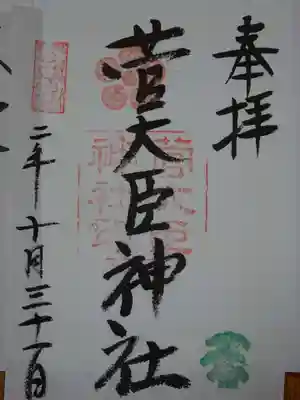 奉拝
菅大臣神社
二年十月三十一日